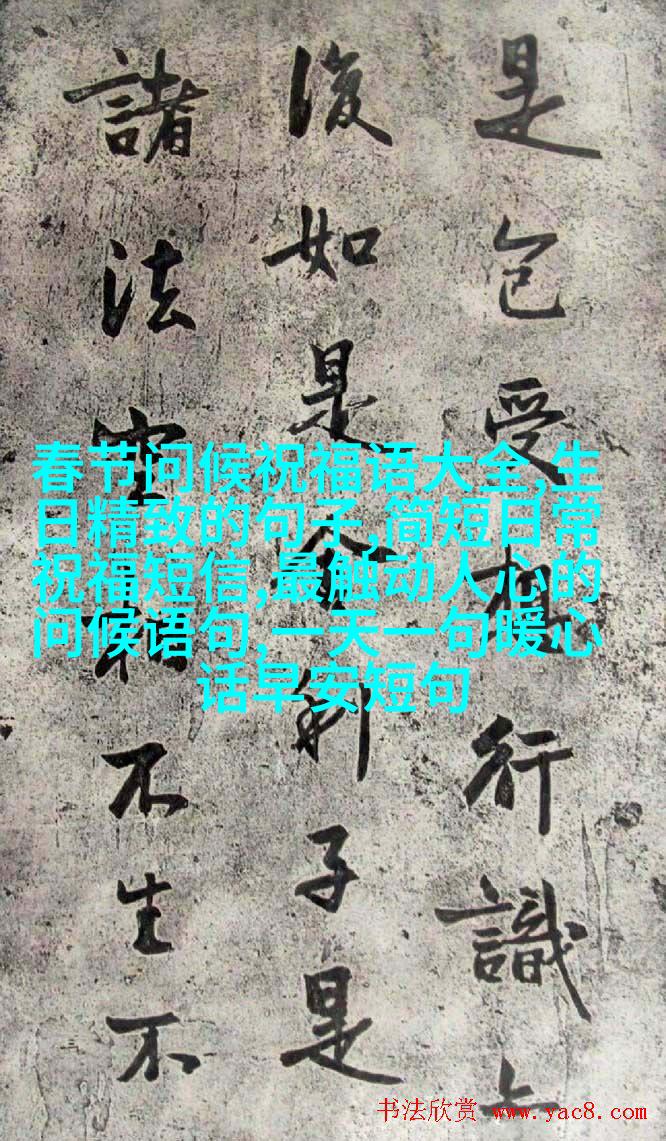 是色受想行識
復如是舍利子是
諸法空相不生不
春节问候祝福语大全,生
日精致的句子,简短日常
祝福短信,最触动人心的
问候语句,一天一句暖心
话早安短句
书法欣赏 www.yac8.com